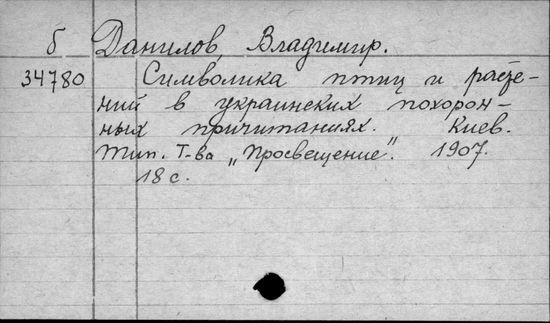 б Данилов, Владимир.
34780 Символика птиц и расте-
ний в украинских похорон-
ных причитаниях. Киев.
Тип. Т-ва „Просвещение". 1907.
18 с.